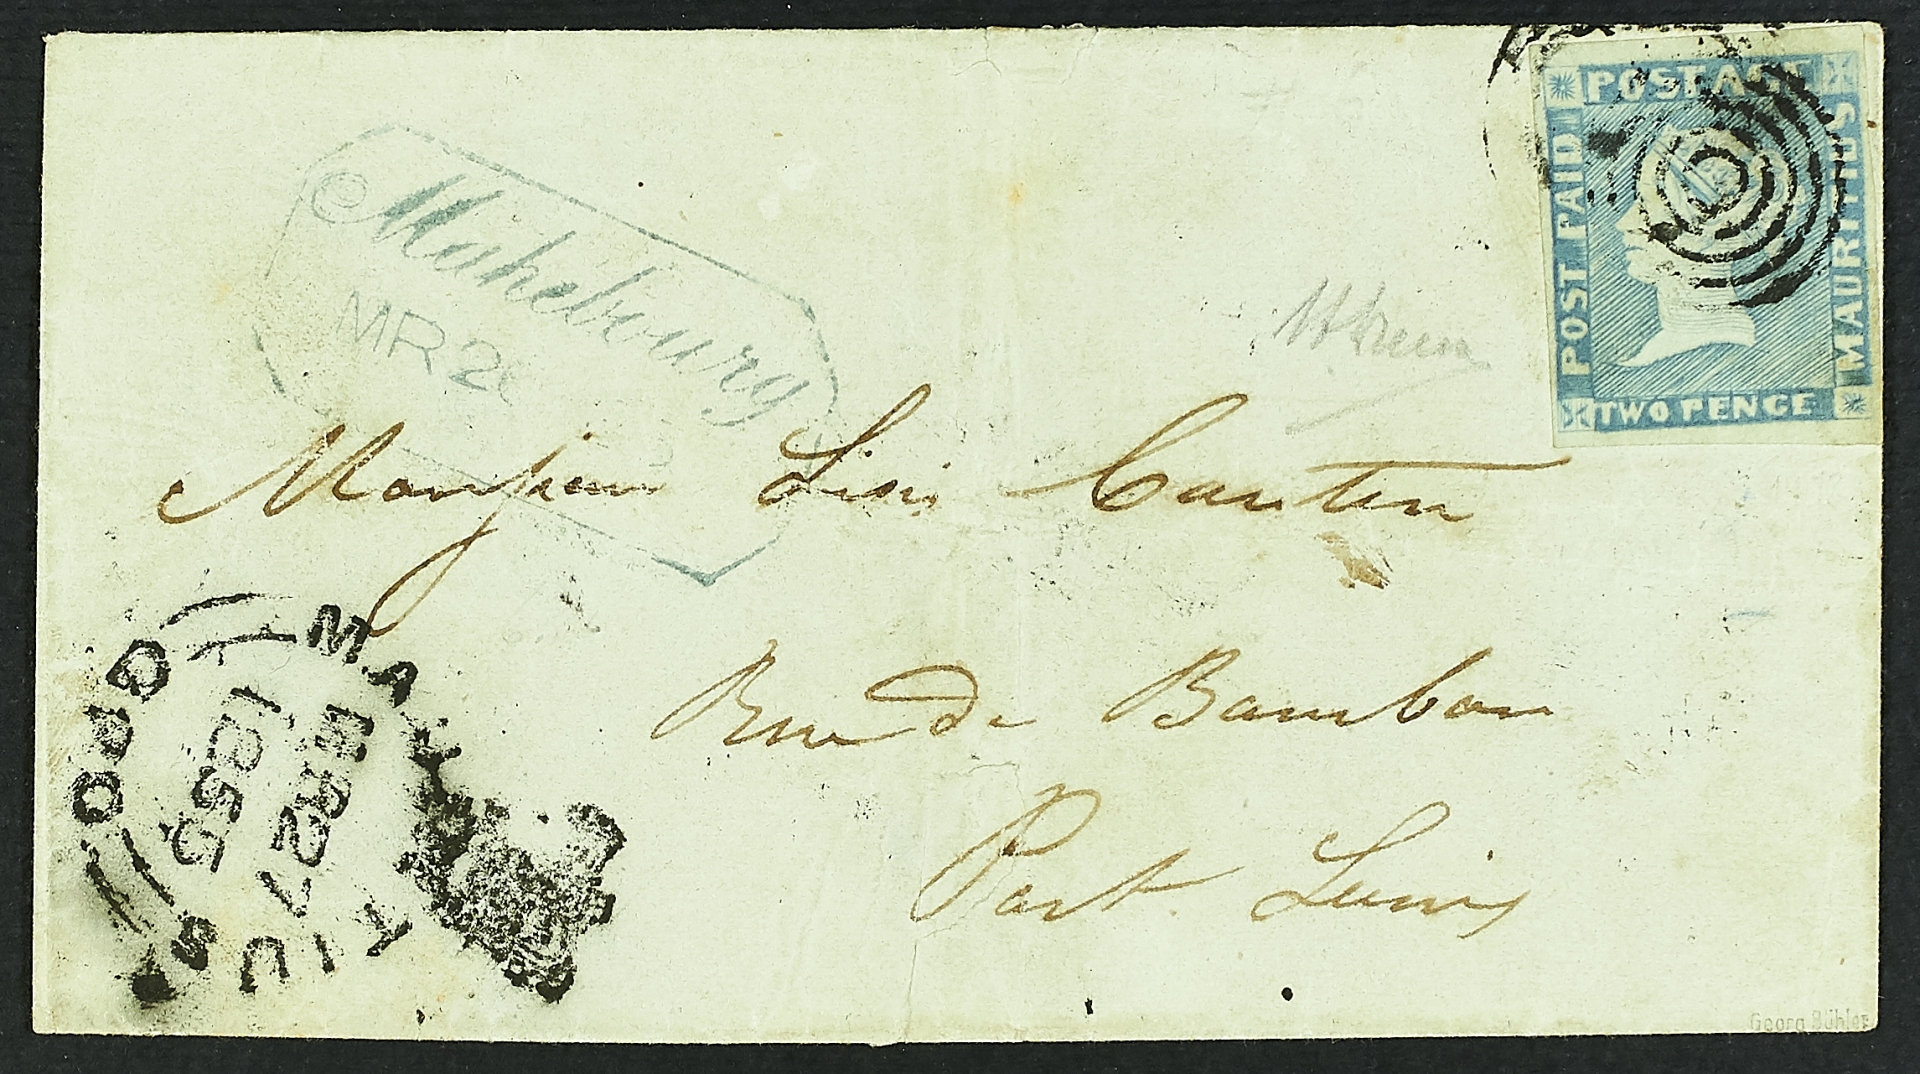 POSTAGE
POST PAID
MAURITIUS
TWO PENCE
Mahebourg
MR 2
Monsieur
Rue de Bambou
Port Louis
MAURITIUS
G.P.O
MR 27
1855
Georg Bühler